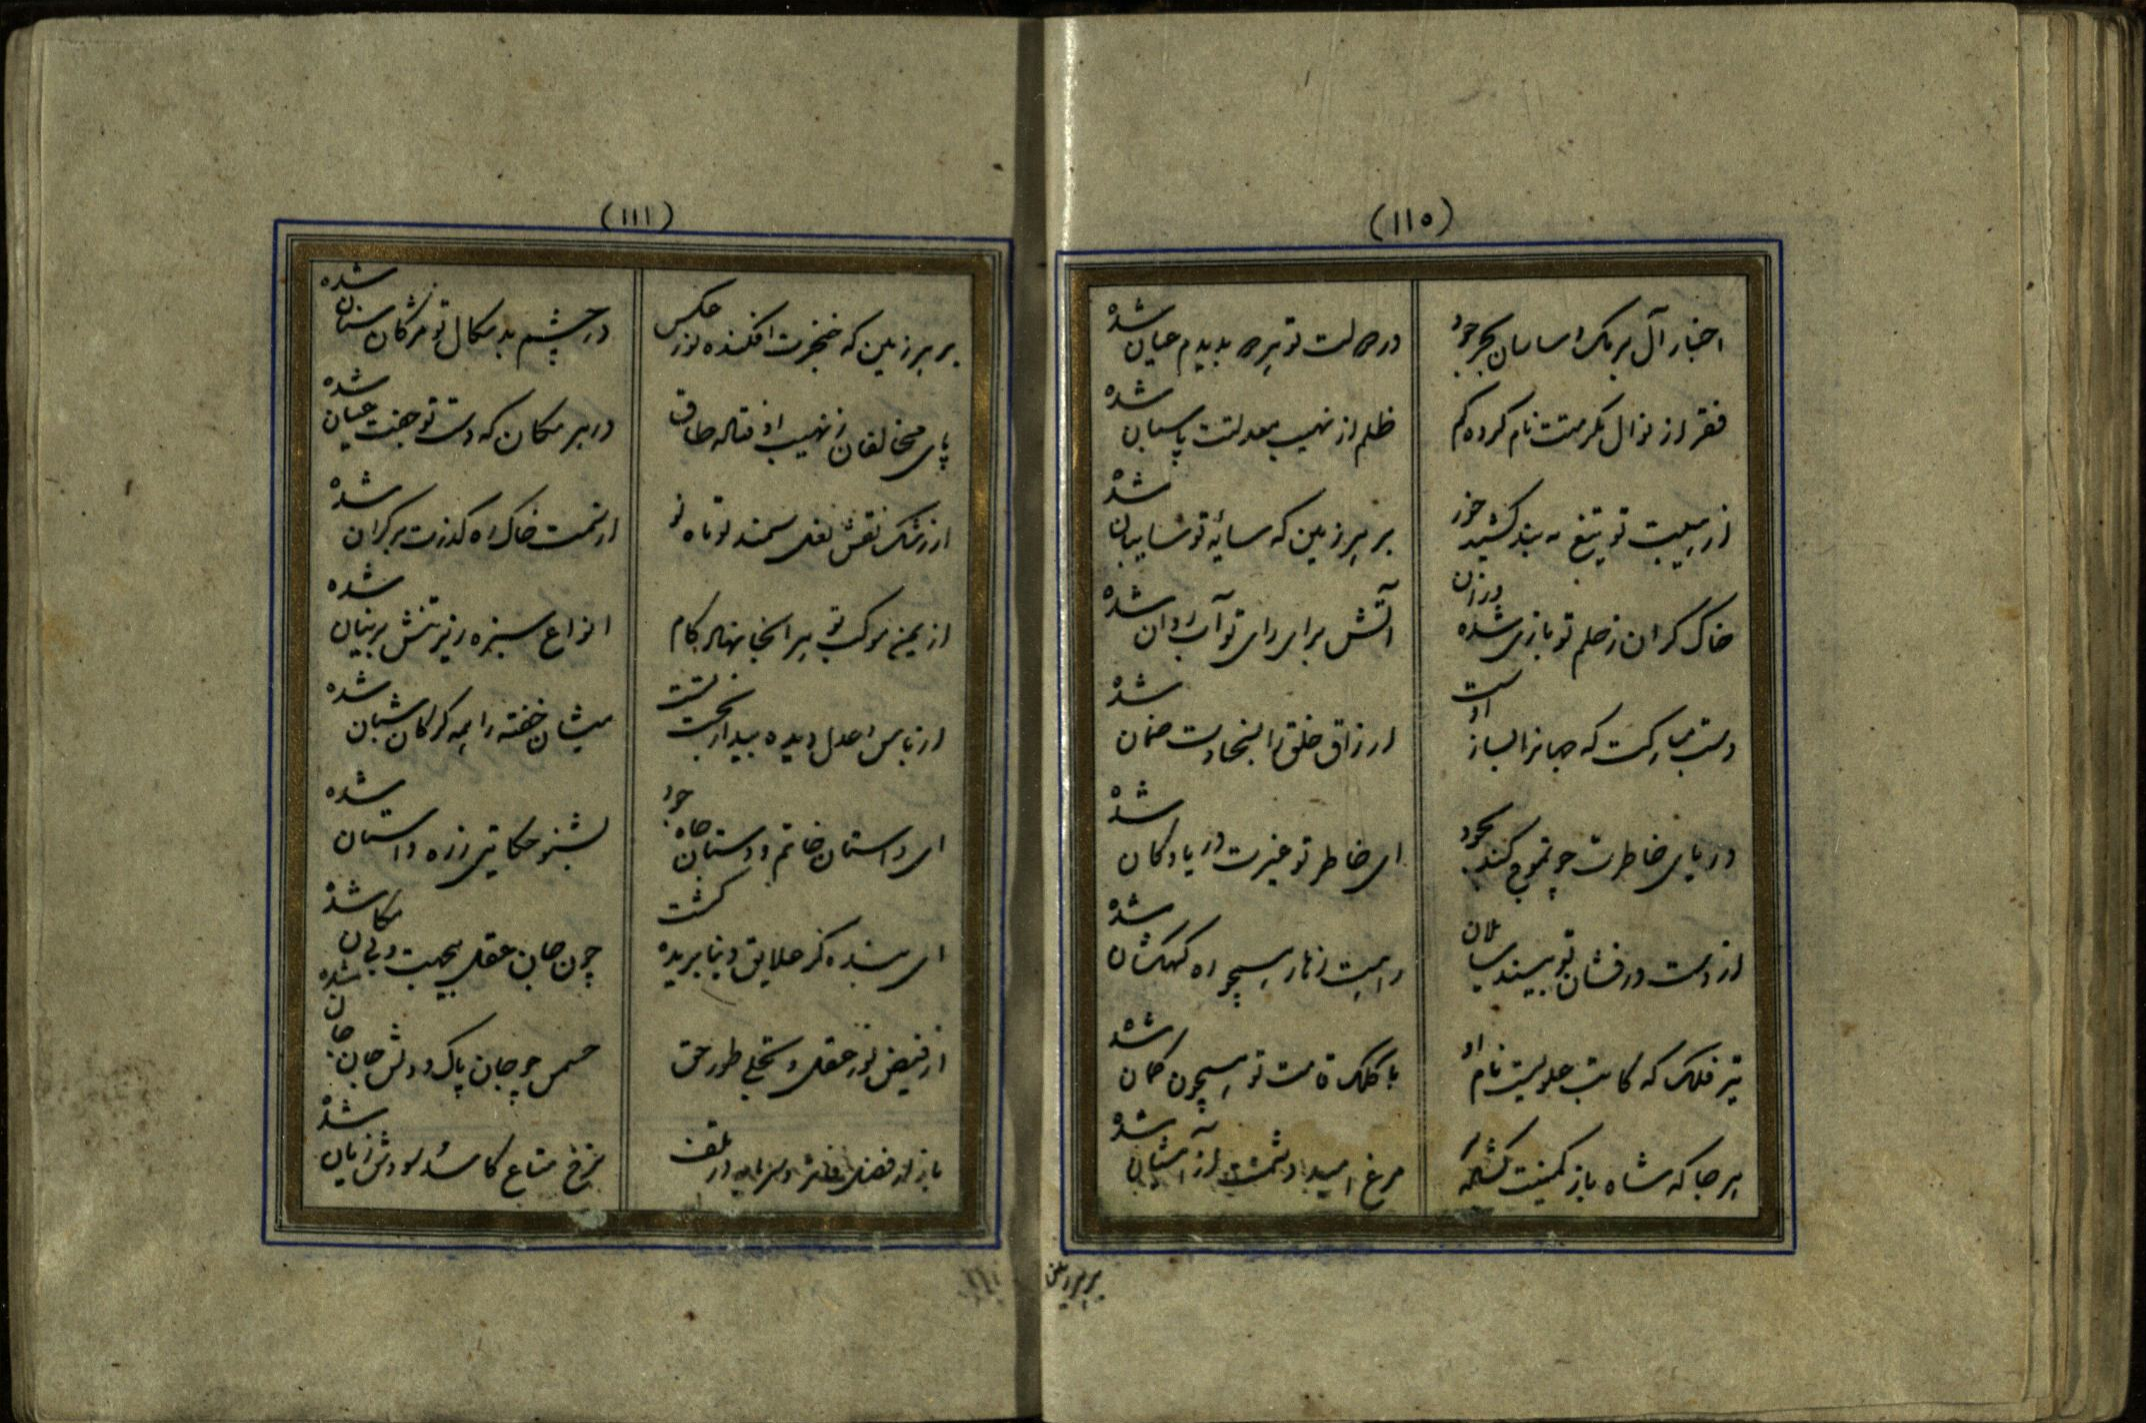 (۱۱۰)
اخبار آل برمک و ساسان بحر جود در دولت تو هر چه بدیدم عیان شده
فقر از نوال مکرمتت نام کرده گم ظلم از نهیب معدلتت پاسبان شده
از هیبت تو تیغ به بند کشید خور بر هر زمین که سایهٔ تو سایبان شده
خاک گران ز حلم تو بازی شده وزان آتش برای رای تو آب روان شده
دست مبارکت که جهانرا بساز اوست ارزاق خلق را بسخاوت ضمان شده
دریای خاطرت چو تموج کند بجود ای خاطر تو غیرت دریا و کان شده
از دست درفشان تو بیند
تیر فلک که کاتب علویست نام او با کلک قامت تو همچون کمان شده
هر جا که شاه باز کمینت مرغ امید دشمنت از آشیان شده
بر هر زمین
(۱۱۱)
بر هر زمین که خنجرت افکنده نور عکس در چشم بد سکال تو مژگان سنان شده
پای مخالفان ز نهیب اوفتاده طاق در هر مکان که دست تو جفت عنان شده
از رشک نقش نعل سمند تو ماه نو از سمت خاک راه گذرت بر کران شده
از یمن موکب تو هر انجا نهاد گام انواع سبزه زیر تنش پرنیان شده
از باس و عدل دیده بیدار بخت تست میشان خفته را همه گرگان شبان شده
ای داستان خاتم دوستان جاه جود بشنو حکایتی ز ره داستان شده
ای بنده کز علایق دنیا بریده گشت چون جان عقل بیجهت و بی مکان شده
از فیض نور عقل و تجلی طور حق جسمش چو جان پاک و دلش جان جان شده
باز از فضل در تلف نرخ متاع کاسد سودش زیان شده